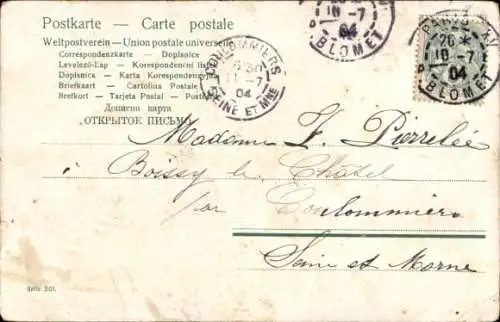 Postkarte - Carte postale
Weltpostverein — Union postale universelle
Correspondenzkarte - Dopisnice
Levelező-Lap - Korespondencni listek
Dopisnica - Karta Korespondencyjna
Briefkaart - Cartolina Postale
Brefkort - Tarjeta Postal - Postkarte
Дописна карта
ОТКРЫТОЕ ПИСЬМО
COULOMMIERS
11 -7
04
SEINE ET MNE
10 -7
04
BLOMET
PARIS XV
26 *
10 -7
04
BLOMET
Madame F. Pierrelée
à Boissy le Châtel
par Coulommiers
Seine et Marne
Serie 201.